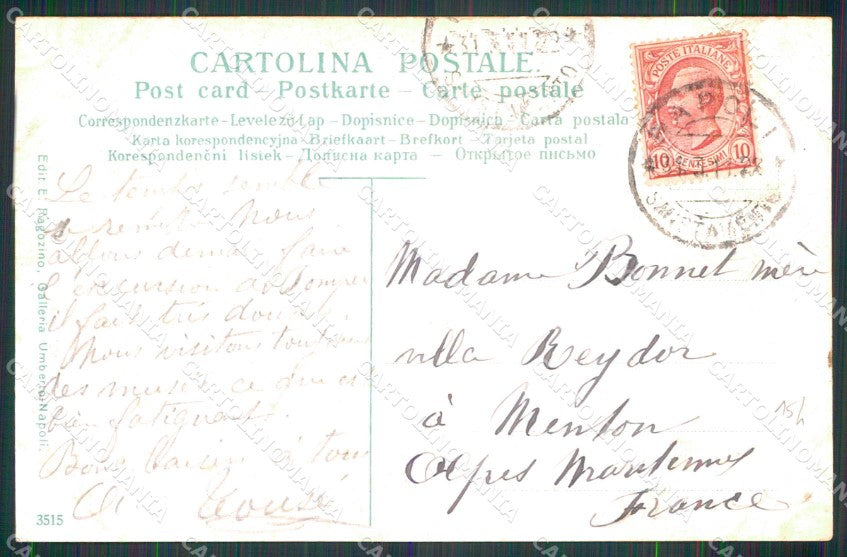 CARTOLINA POSTALE.
Post card - Postkarte - Carte postale
Correspondenzkarte - Levelező Lap - Dopisnice - Dopisnica - Carta postala
Karta korespondencyjna - Briefkaart - Brefkort - Tarjeta postal
Korespondenční listek - Дописна карта - Открытое письмо
POSTE ITALIANE
10 CENTESIMI 10
Edit. E. Ragozino, Galleria Umberto, Napoli.
Le temps semble
se remettre Nous
allons demain faire
l'excursion de Pompei
il fait très doux.
Nous visitons
des musées ce qui est
bien fatigant.
Bons baisers à tous
3515
Madame Bonnet mère
villa Reydor
à Menton
Alpes Maritimes
France
CARTOLINOMANIA